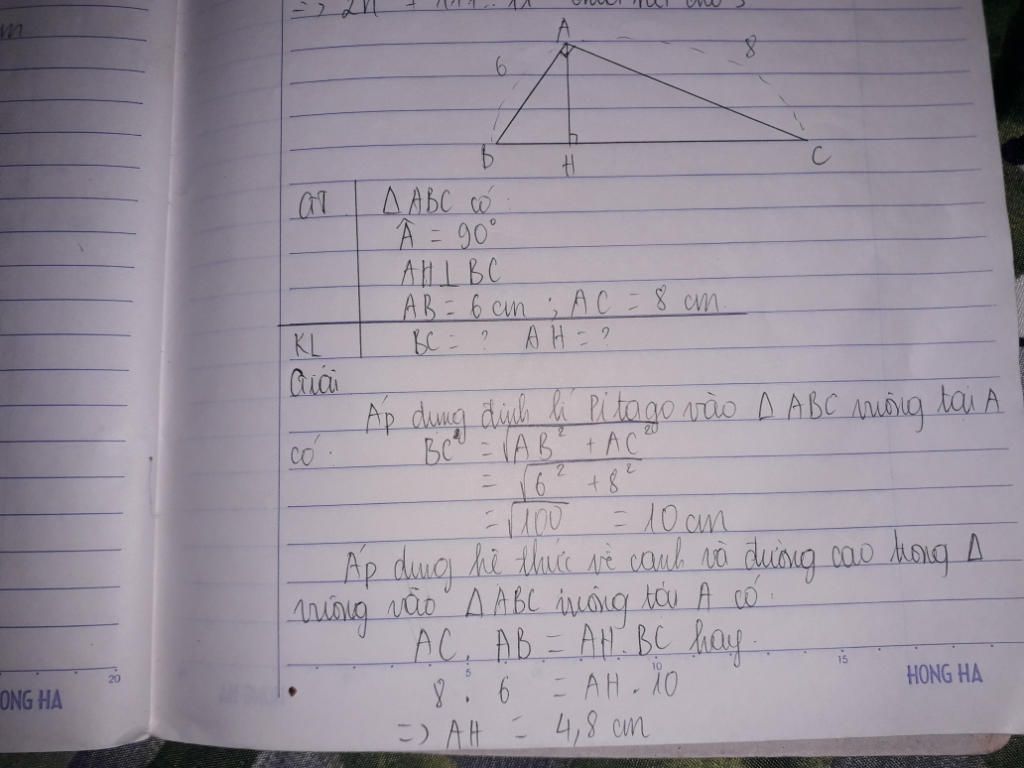 A
6
8
B
H
C
GT
Δ ABC có:
Â = 90°
AH ⊥ BC
AB = 6 cm ; AC = 8 cm.
KL
BC = ? AH = ?
Giải
Áp dụng định lí Pitago vào Δ ABC vuông tại A
có: BC = √AB² + AC²
= √6² + 8²
= √100 = 10 cm
Áp dụng hệ thức về cạnh và đường cao trong Δ
vuông vào Δ ABC vuông tại A có:
AC. AB = AH. BC hay.
8 . 6 = AH . 10
=> AH = 4,8 cm
5
10
15
20
HONG HA
ONG HA